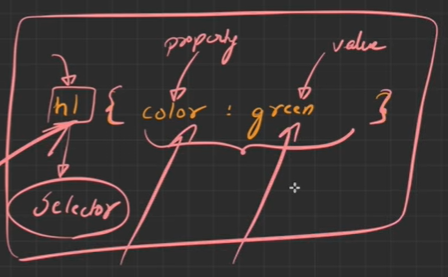 property value
h1 { color : green }
Selector